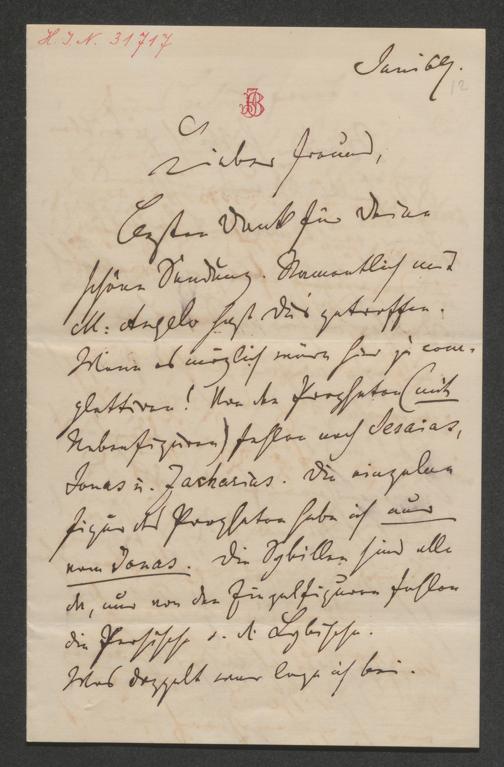 H. I. N. 31717
Juni 69.
12
JB
Lieber Freund,
Besten Dank für Deine
schöne Sendung. Namentlich mit
M: Angelo hast Du's getroffen.
Wenn es möglich wäre ihn zu com-
plettiren! Von den Propheten (mit
Nebenfiguren) fehlen noch Jesaias,
Jonas u. Zacharias. Die einzelne
Figur des Propheten habe ich nur
vom Jonas. Die Sybillen sind alle
da, nur von den Einzelfiguren fehlen
die Persische u. d. Lybische.
Was doppelt war lege ich bei.